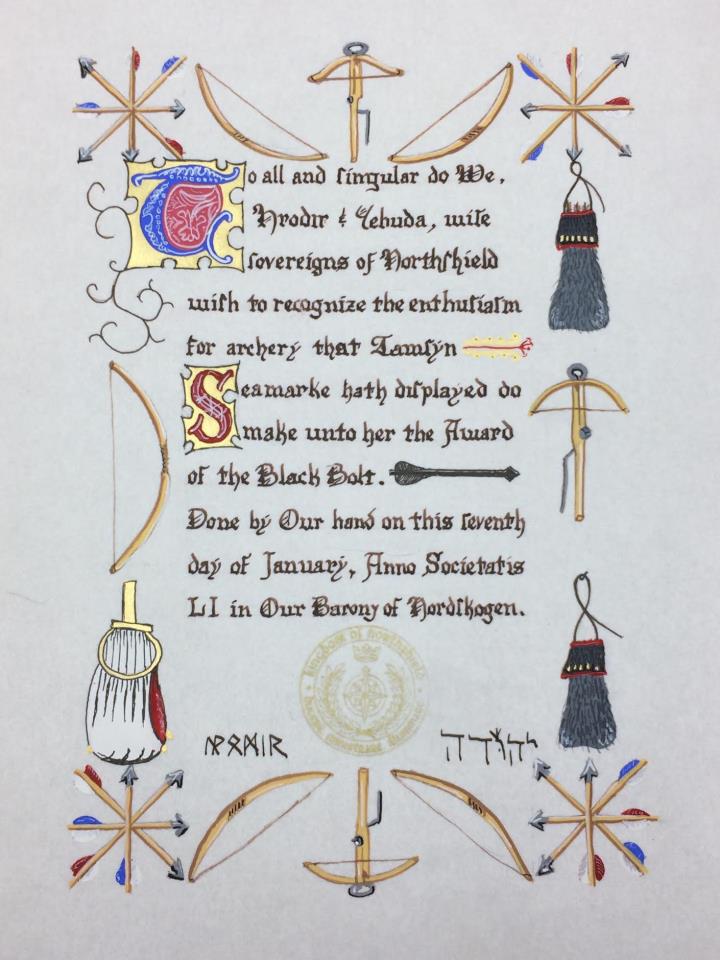 To all and singular do We,
Hrodir & Yehuda, wise
sovereigns of Northshield
wish to recognize the enthusiasm
for archery that Tamsyn
Seamarke hath displayed do
make unto her the Award
of the Black Bolt.
Done by Our hand on this seventh
day of January, Anno Societatis
LI in Our Barony of Nordskogen.
Kingdom of Northshield
יהודה